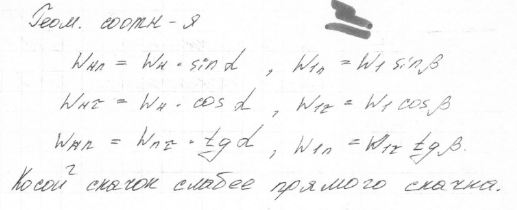 Геом. соотн-я
Wнп = Wн · sin α , W1п = W1 sin β
Wнτ = Wн · cos α , W1τ = W1 cos β
Wнп = Wпτ · tg α , W1п = W1τ tg β.
Косой скачок слабее прямого скачка.